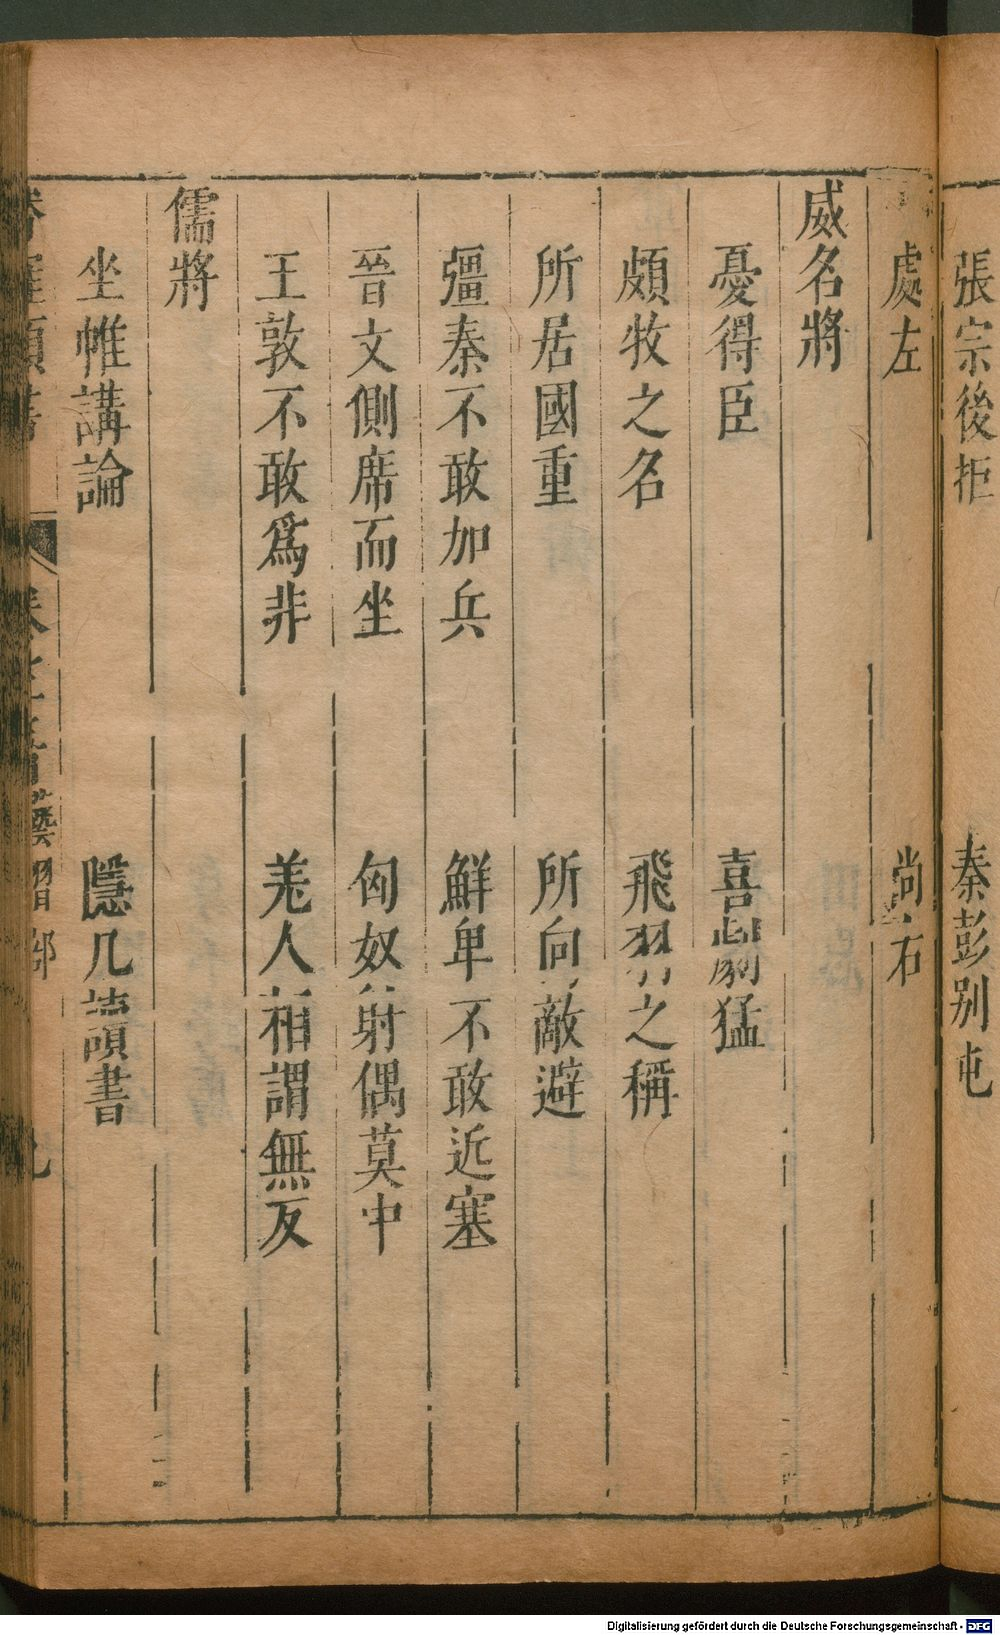 張宗後拒　秦彭別屯
處左　尚右
威名將
憂得臣　喜劇猛
頗牧之名　飛羽之稱
所居國重　所向敵避
彊秦不敢加兵　鮮卑不敢近塞
晉文側席而坐　匈奴射偶莫中
王敦不敢爲非　羌人相謂無反
儒將
坐帷講論　隱几讀書
類書　卷之
Digitalisierung gefördert durch die Deutsche Forschungsgemeinschaft - DFG